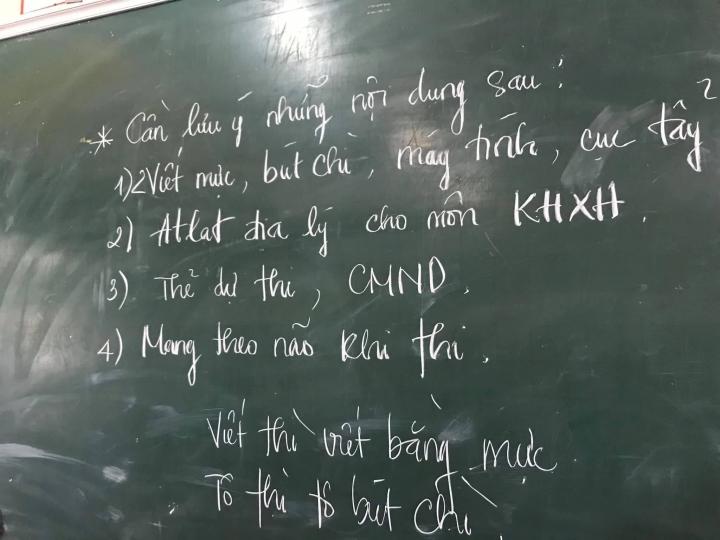 * Cần lưu ý những nội dung sau:
1) 2 Viết mực, bút chì, máy tính, cục tẩy
2) Atlat địa lý cho môn KHXH.
3) Thẻ dự thi, CMND.
4) Mang theo não khi thi.
Viết thì viết bằng mực
Tô thì tô bút chì